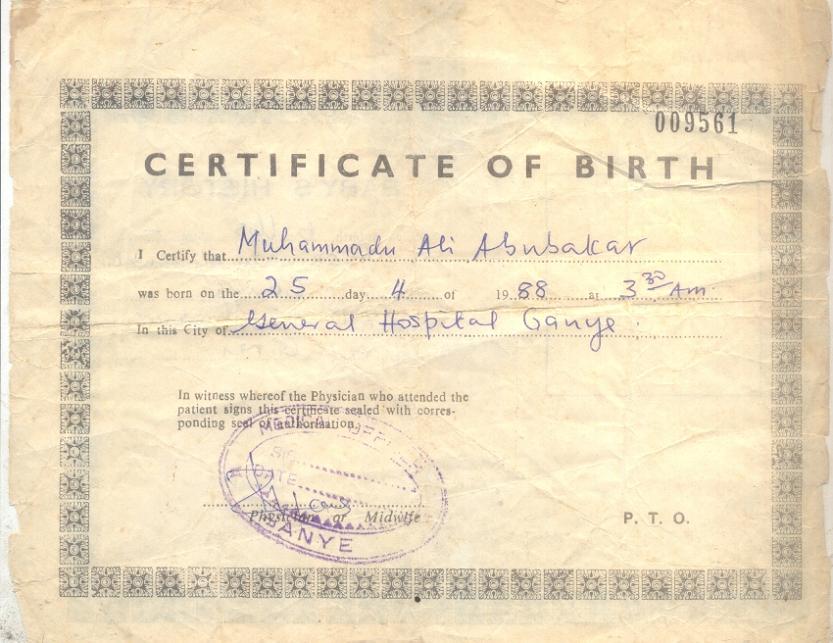 009561
CERTIFICATE OF BIRTH
I Certify that Muhammadu Ali Abubakar
was born on the 25 day 4 of 1988 at 3 30 Am.
In this City of General Hospital Ganye.
In witness whereof the Physician who attended the
patient signs this certificate sealed with corres-
ponding seal of authorisation.
MEDICAL OFFICER
SIG
DATE
Physician or Midwife
P. T. O.
GANYE